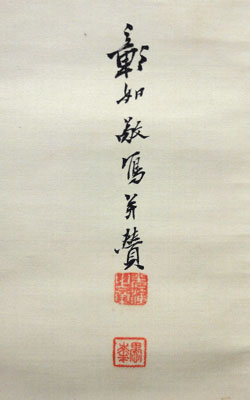 彰如敬寫并賛